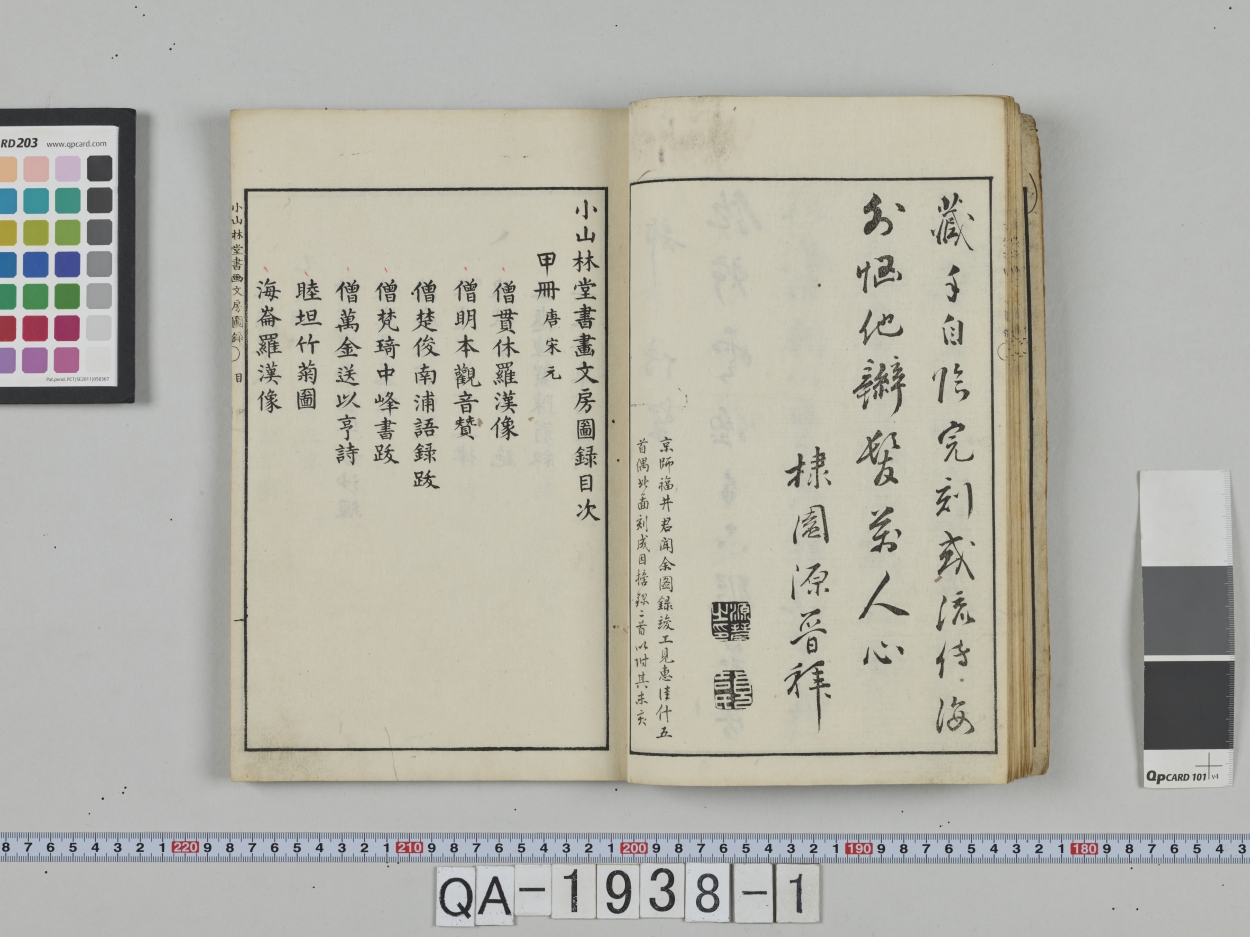 藏手自臨完刻或流傳海
外恓他辮髮万人心
棣園源晉拜
京師福井君聞余図録竣工見惠佳什五
首偶此面刻成因擔録二首以附其末云
小山林堂書畫文房圖録目次
甲冊 唐宋元
僧貫休羅漢像
僧明本觀音賛
僧楚俊南浦語録跋
僧梵琦中峰書跋
僧萬金送以亨詩
睦坦竹菊圖
海崙羅漢像
小山林堂書画文房圖録 目 一
CARD203 www.qpcard.com
QpCARD 101 v4
8 7 6 5 4 3 2 1 220 9 8 7 6 5 4 3 2 1 210 9 8 7 6 5 4 3 2 1 200 9 8 7 6 5 4 3 2 1 190 9 8 7 6 5 4 3 2 1 180 9 8 7 6 5 4 3
QA-1938-1